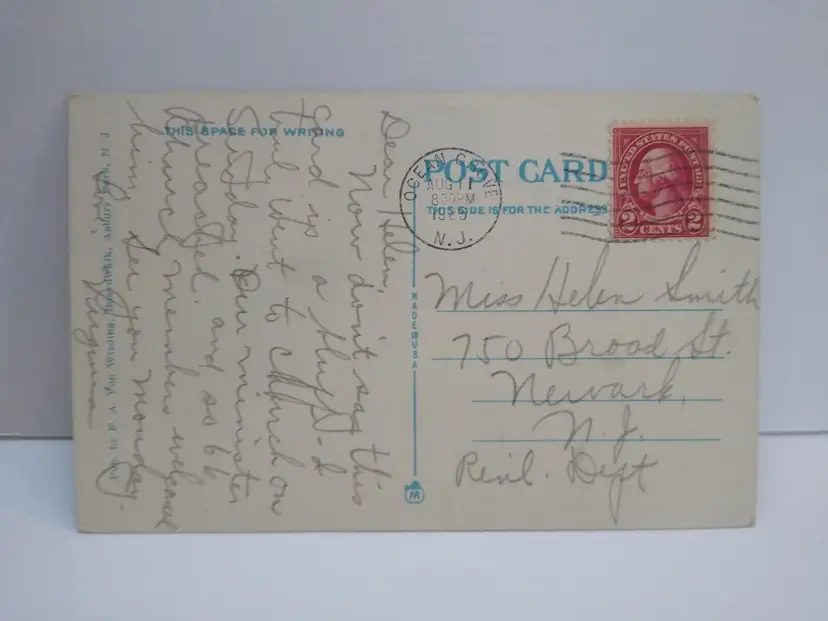 THIS SPACE FOR WRITING
Dear Helen,
Now don't say this
Card is a
I went to Church on
Sunday. Our minister
preached and so 66
church members welcome
him. See you Monday.
Virginia
Pub. by P. A. Van Winding, Boardwalk, Asbury Park, N J
MADE IN USA
M
POST CARD
THIS SIDE IS FOR THE ADDRESS
OCEAN GROVE
AUG 11
8 30 PM
N. J.
UNITED STATES POSTAGE
2 CENTS 2
Miss Helen Smith
750 Broad St.
Newark,
N. J.
Dept